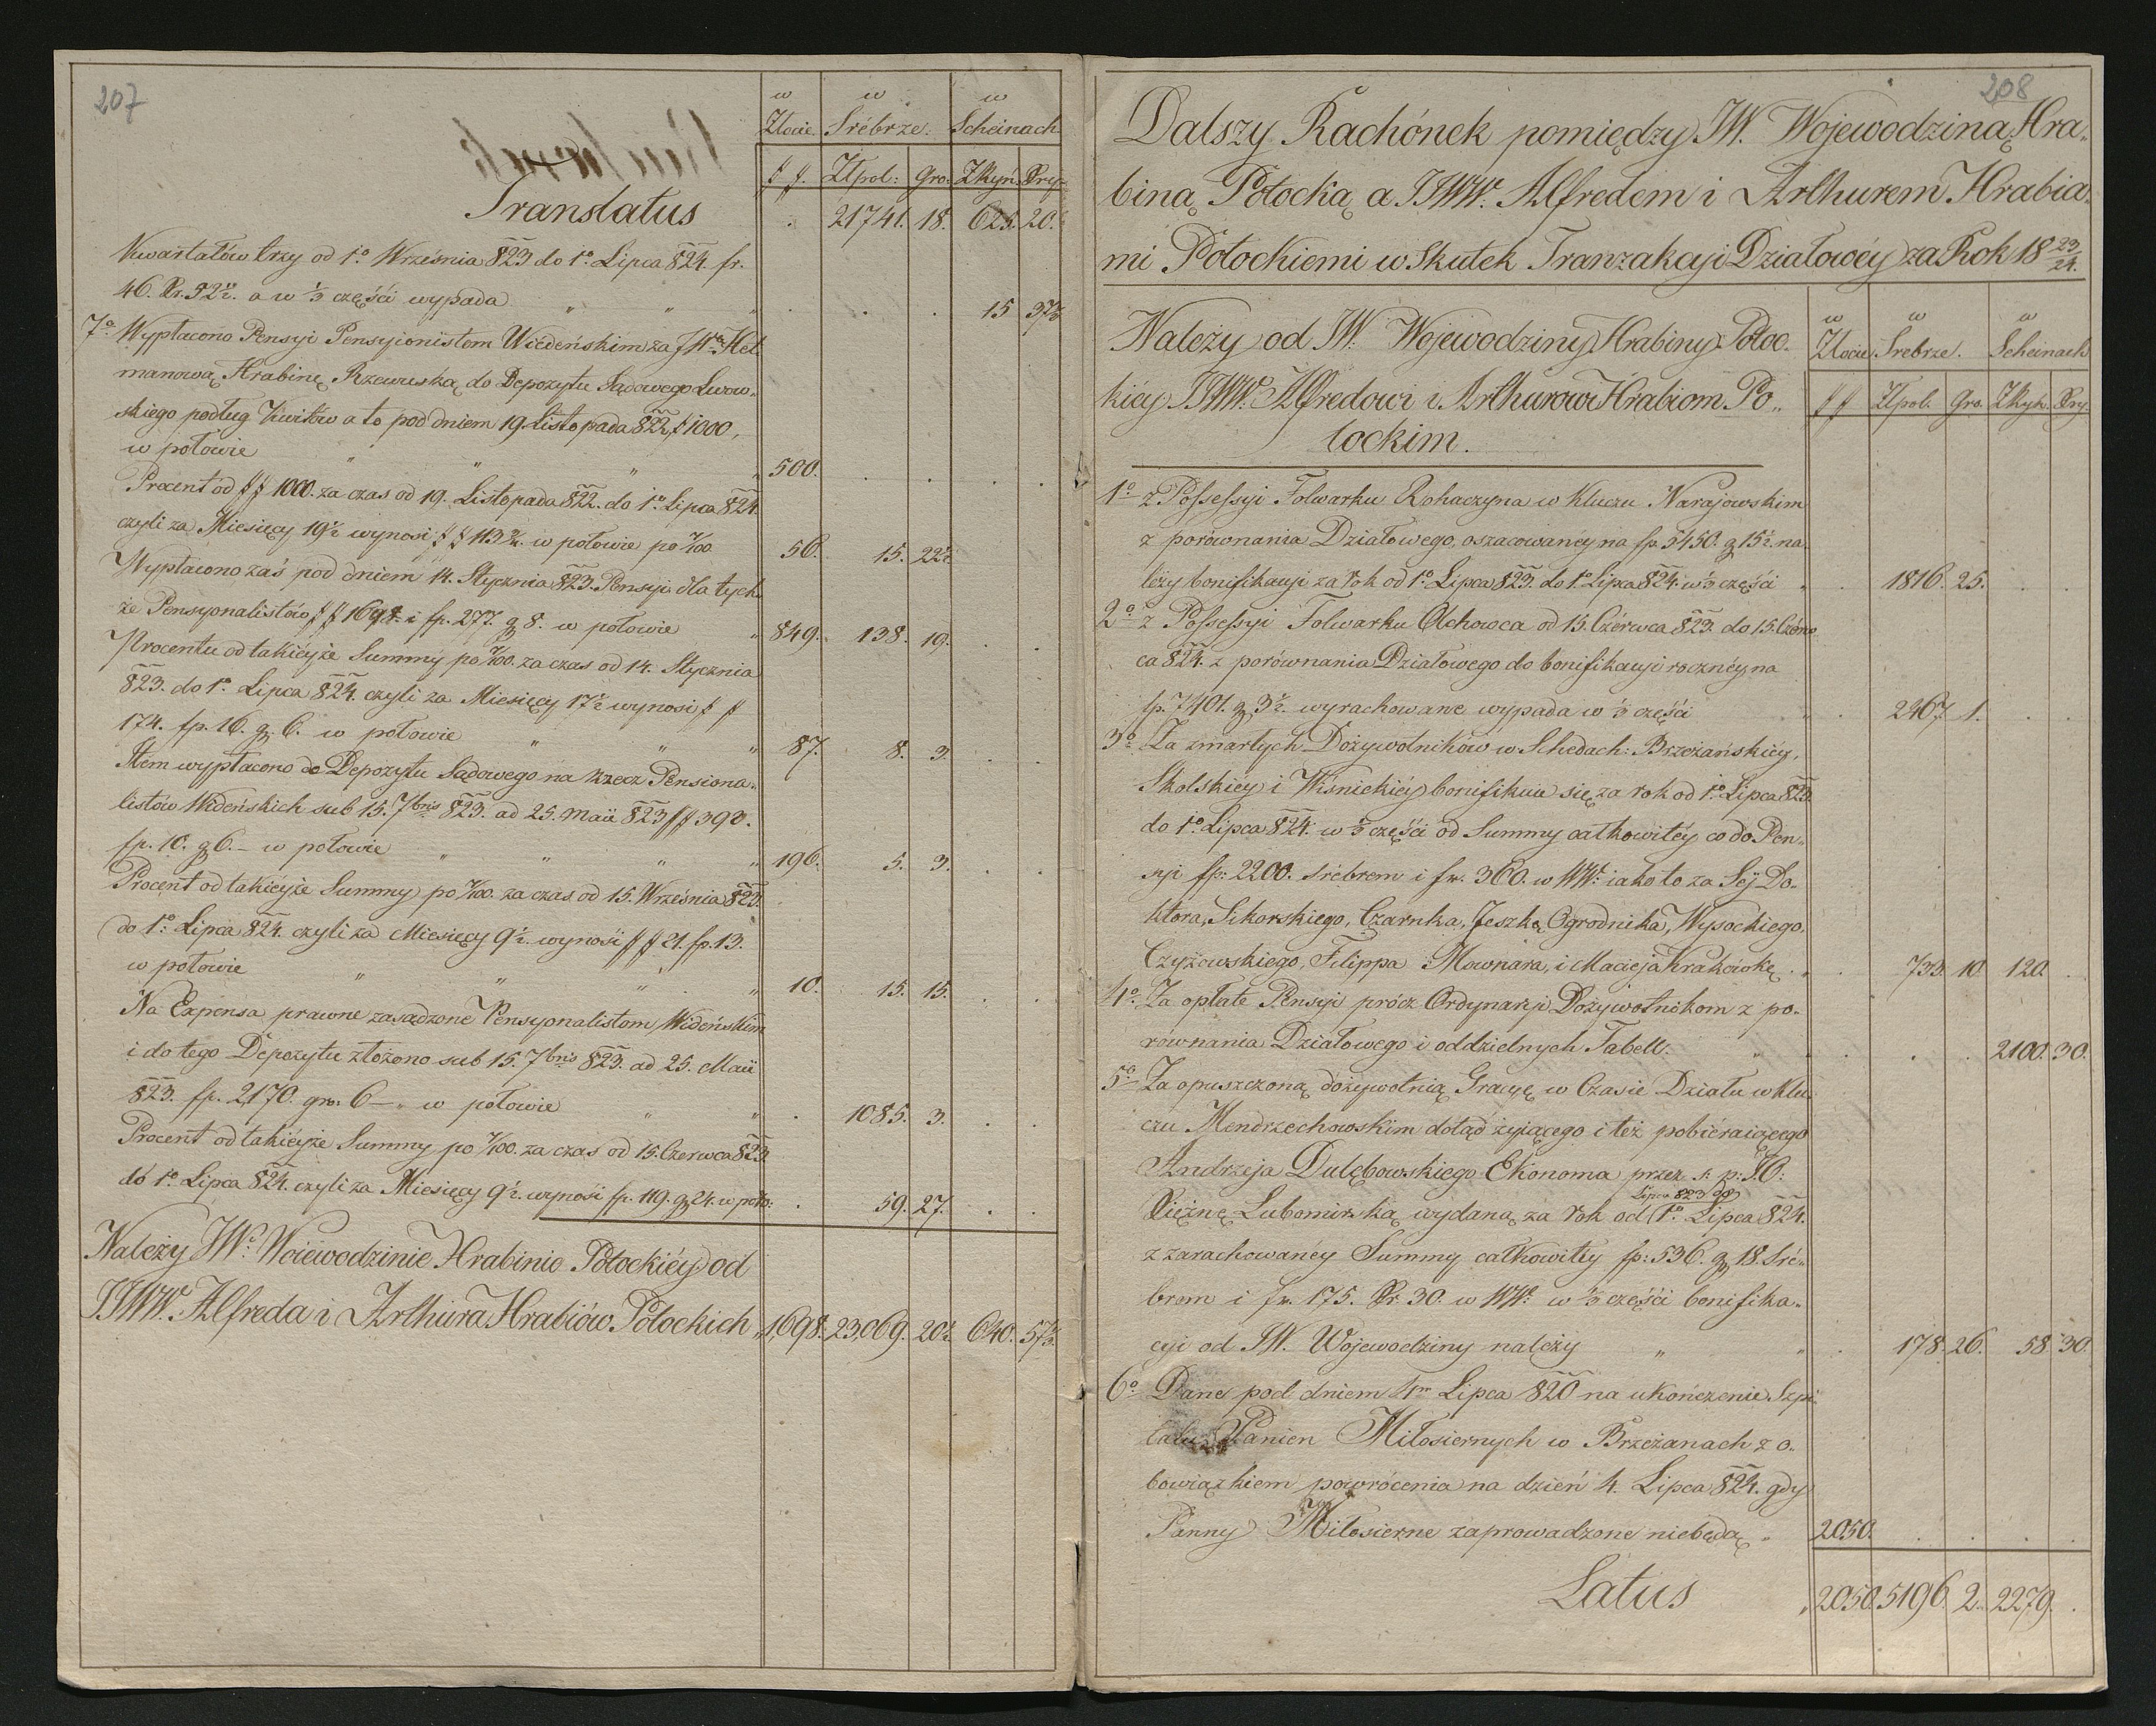 207
w w w
Złocie. Srébrze. Scheinach
# #. Złpol: Gro: ZRyń. Xry.
Translatus . 21741. 18. 625. 20.
Kwartałów trzy od 1º Września 823 do 1º Lipca 824. fr.
46. Xr. 52½. a w ⅓ części wypada „ „ „ . . . 15 37½
7º Wypłacono Pensyi Pensyionistom Wiédeńskim za JWą Het
manową Hrabinę Rzewuską do Depozytu Sądowego Lwow„
skiego podług Kwitów a to pod dniem 19. Listopada 822 # 1000,
w połowie „ „ „ „ 500. . . . .
Procent od ## 1000. za czas od 19. Listopada 822. do 1º Lipca 824.
czyli za Miesięcy 19½ wynosi ## 113 w połowie po 7/100 56. 15. 22½
Wypłacono zaś pod dniem 14. Stycznia 823. Pensyi dla tych
że Pensyonalistów ## 1698. i fp. 277. g 8. w połowie „ 849. 138. 19. . .
Procentu od takiéyże Summy po 7/100. za czas od 14. Stycznia
823. do 1º Lipca 824. czyli za Miesięcy 17½ wynosi ##
174. fp. 16. g. 6. w połowie „ „ „ 87. 8. 3. . .
Item wypłacono do Depozytu Sądowego na rzecz Pensiona„
listów Wideńskich sub 15. 7bris 823. ad 25. Maii 823 ## 393.
fp. 10. g 6.– w połowie „ „ „ „ 196. 5. 3. . .
Procent od takiéyże Summy po 7/100. za czas od 15. Września 823.
do 1º Lipca 824. czyli za Miesięcy 9½. wynosi ## 21. fp. 13.
w połowie „ „ „ „ 10. 15. 15. . .
Na Expensa prawne zasądzone Pensyonalistom Wideńskim
i do tego Depozytu złożono sub 15. 7bris 823. ad 25. Maii
823. fp. 2170. gro: 6–„ w połowie „ „ . 1085. 3. . .
Procent od takiéyże Summy po 7/100. za czas od 15. Czerwca 823.
do 1º Lipca 824. czyli za Miesięcy 9½. wynosi fp. 119. g 24. w poło: . 59. 27. . .
Należy JWº Woiewodzinie Hrabinie Potockiéy od
JJWW. Alfreda i Arthura Hrabiów Potockich „ 1,698. 23,069. 20½ 640. 57½.
208
Dalszy Rachónek pomiędzy JW. Wojewodziną Hra„
biną Potocką a JJWW. Alfredem i Arthurem Hrabia„
mi Potockiemi w Skutek Tranzakcyi Działowéy za Rok 18 23/24.
Należy od JW. Wojewodziny Hrabiny Potoc„
kiéy JJWW. Alfredowi i Arthurowi Hrabiom Po„
tockim.
w w w
Złocie Srebrze. Scheinach
## Złpol. Gro. ZRyń. Xry.
1º z Possessyi Folwarku Rohaczyna w Kluczu Narajowskim
z porównania Działowego, oszacowanéy na fp. 5450. g 15½. na„
leży bonifikacyi za rok od 1º Lipca 823. do 1º Lipca 824. w ⅓ części „ . 1816. 25. . .
2º z Possessyi Folwarku Olchowca od 15. Czérwca 823. do 15. Czérw„
ca 824. z porównania Działowego do bonifikacyi rocznéy na
fp. 7401. g 3½. wyrachowane wypada w ⅓ części „ . 2467. 1. . .
3º Za zmarłych Dożywotników w Schedach: Brzeżańskiéy,
Skolskiéy i Wiśnickiéy bonifikuie się za rok od 1º Lipca 823.
do 1º Lipca 824. w ⅓ części od Summy całkowitéy co do Pen„
syi fp: 2200. srébrem i fw. 360. w WW: iako to za Séy Do„
ktora, Sikorskiego, Czarnka, Jeszkę Ogrodnika, Wysockiego,
Czyżowskiego, Filippa Mownara, i Macieja Krakówkę „ . 733. 10 120. .
4º. Za opłatę Pensyi prócz Ordynaryi Dożywotnikom z po„
równania Działowego i oddzielnych Tabell. „ „ . . . 2100. 30.
5º Za opuszczoną dożywotnią Gracyę w Czasie Działu w Klu„
czu Mendrzechowskim dotąd żyiącego i też pobiéraiącego
Andrzeja Dulębowskiego Ekonoma przez ś: p: J.O:
Lipca 823 do
Xiężnę Lubomirską wydaną za rok od 1º Lipca 824.
z zarachowanéy Summy całkowitéy fp: 536. g 18. Sré„
brem i fw. 175. Xr. 30. w WW: w ⅓ części bonifika„
cyi od JW. Wojewodziny należy „ „ . 178. 26. 58. 30.
6º Dane pod dniem 4m Lipca 820 na ukończenie Szpi„
talu Panien Miłosiernych w Brzeżanach z o„
bowiązkiem powrócenia na dzień 4. Lipca 824. gdy
Panny Miłosierne zaprowadzone niebędą „ 2050. . . . .
Latus „ 2050. 5196. 2. 2279. .